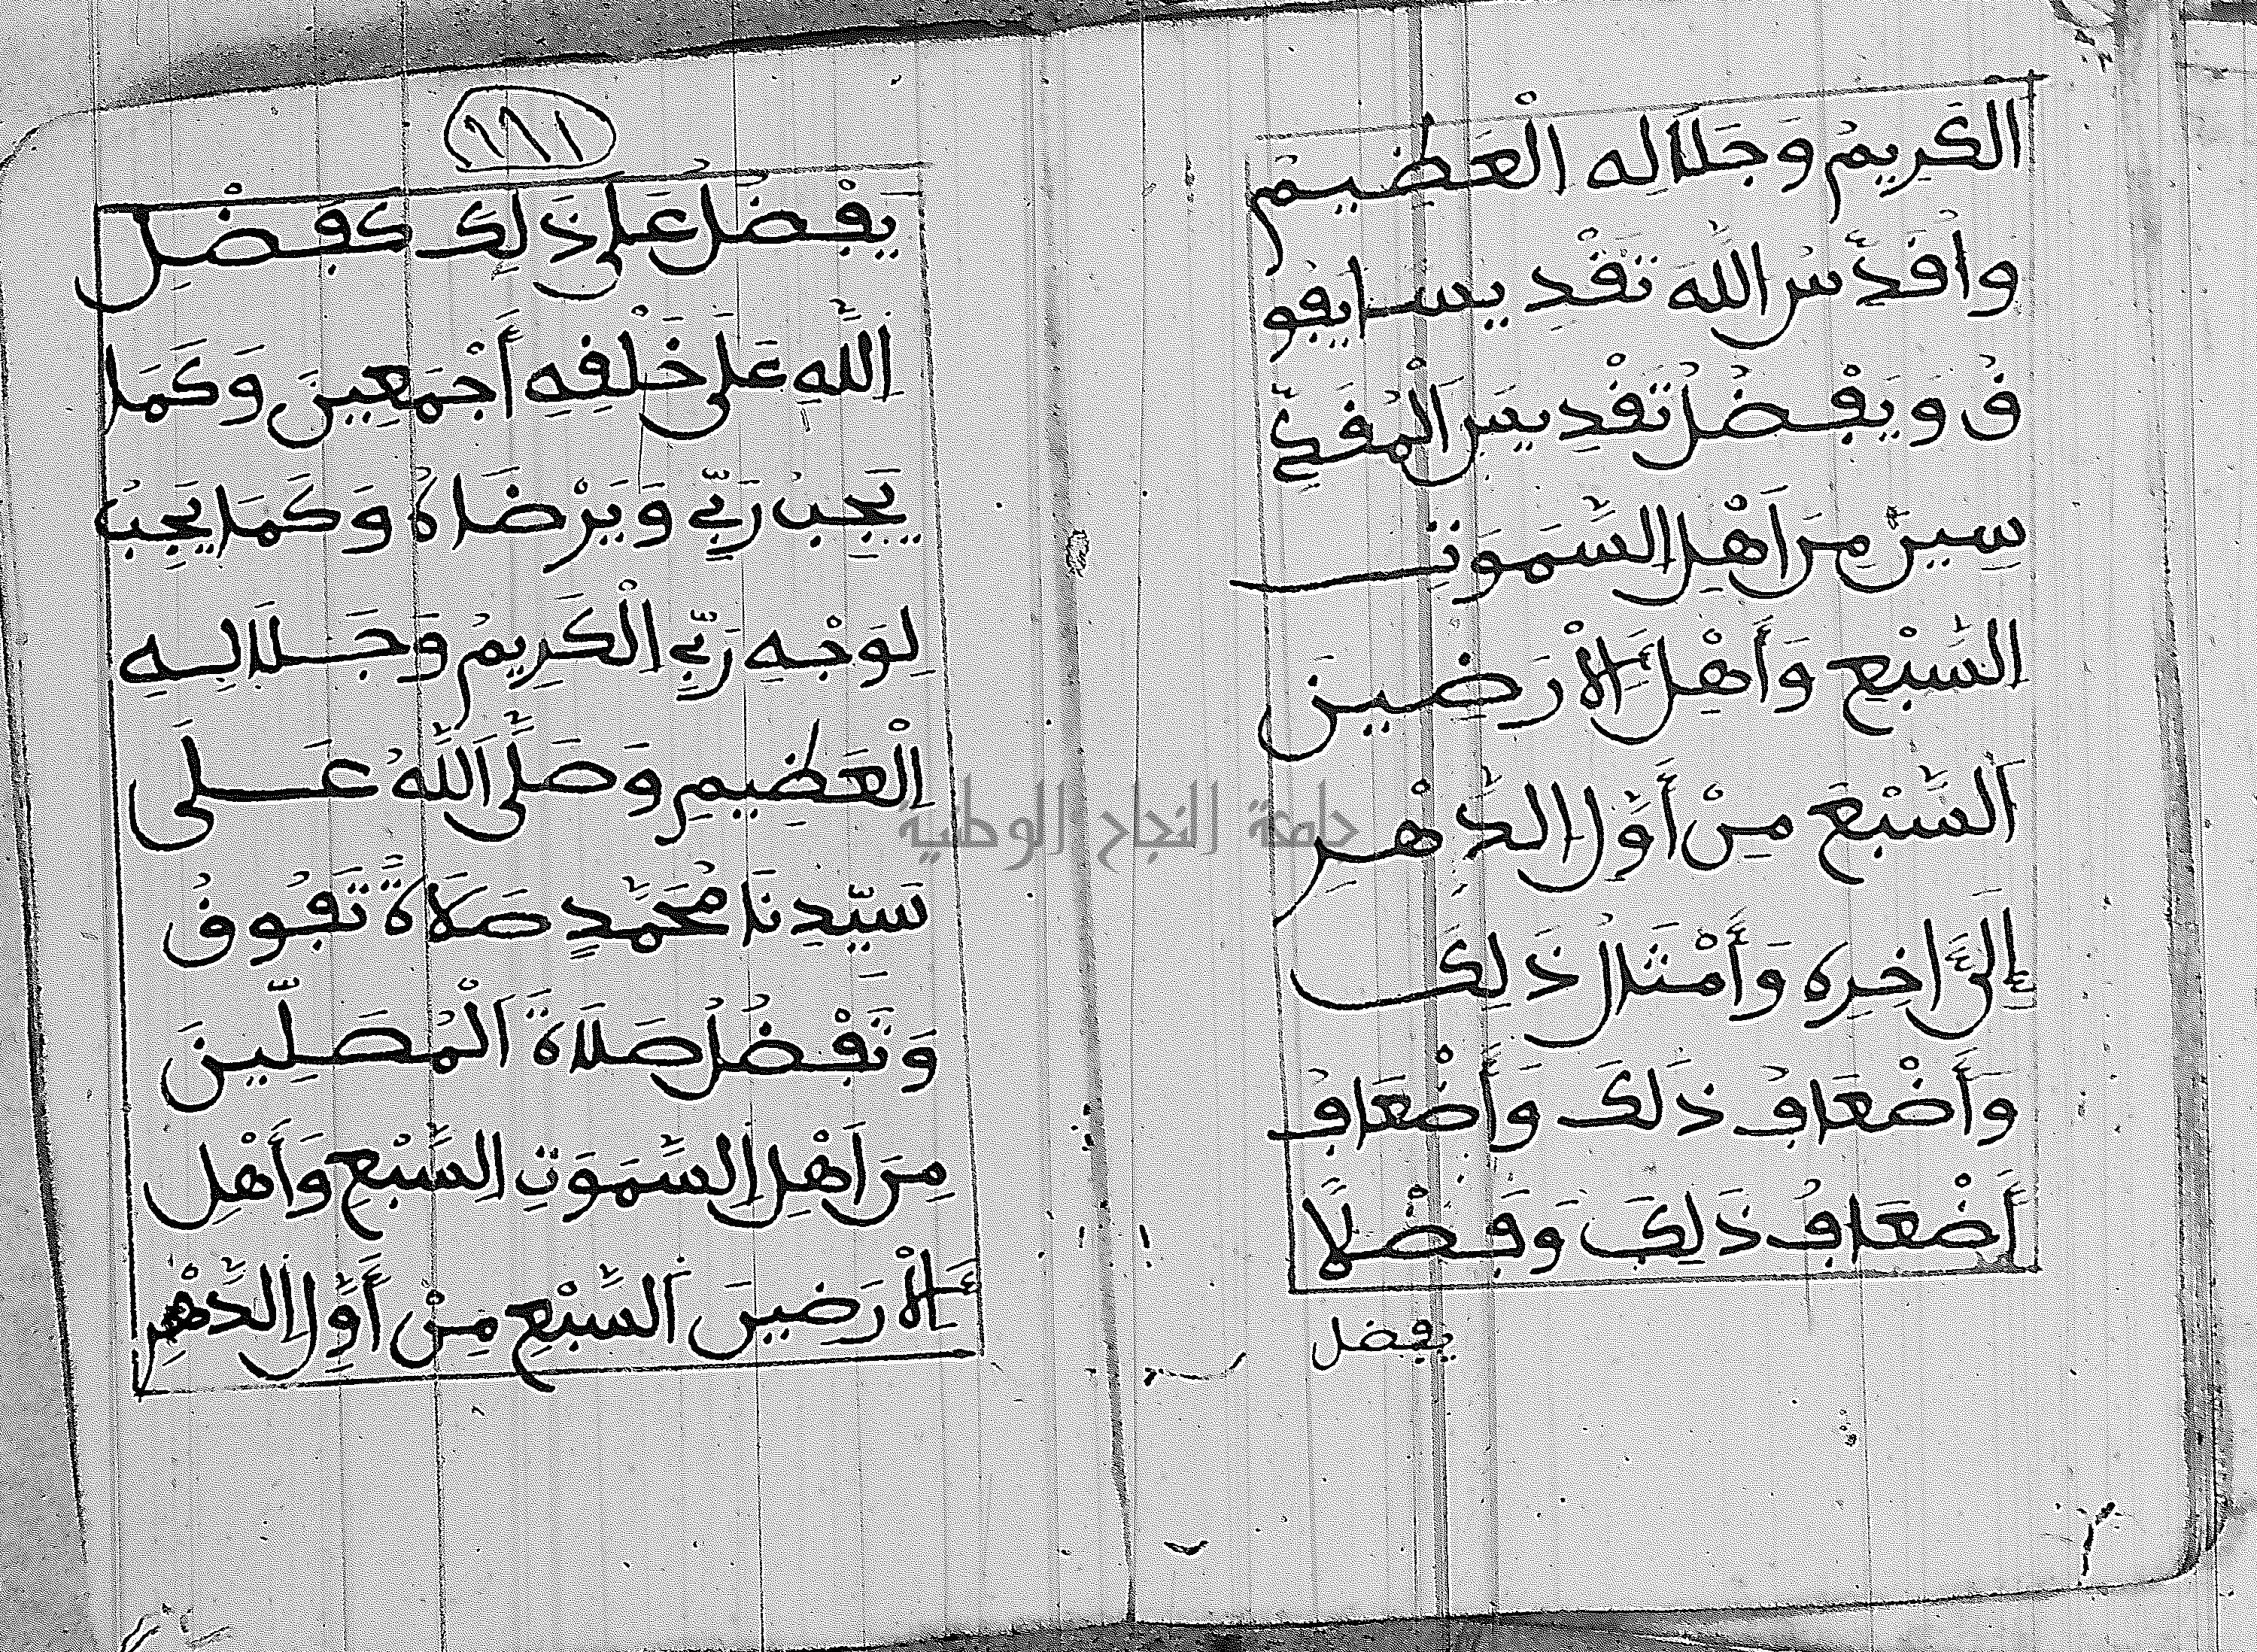 الكَرِيمِ وَجَلَالِه الْعَظِيمِ
وأُقَدِّسُ اللَّهَ تَقْدِيسا يفو
قُ وَيَفْضُلُ تَقْدِيسَ الْمُقَدِّ
سِينَ مِنَ اَهْلِ السَّمَوَتِ
السَّبْعِ وَأَهْلِ الْأَرَضِينَ
اَلسَّبْعَ مِنْ أَوَّلِ الدَّهْرِ
إِلَىٰٓ اخِرِه وَأَمْثَلُ ذَلِكَ
وَأَضْعَافُ ذَلِكَ وَأَضْعَافُ
أَضْعَافُ ذَلِكَ وَفَضْلًا
يفضل
١٨١
يَفْضُلُ عَلَى ذَلِكَ كَفَضْلِ
اللَّهِ عَلَى خَلْقِهِ أَجْمَعِينَ وَكَمَا
يُحِبُّ رَبِّي وَيَرْضَاهُ وَكَمَا يَجِبُ
لِوَجْهِ رَبِّي الْكَرِيمِ وَجَلَالِهِ
الْعَظِيمِ وَصَلَّى اللَّهُ عَلَى
سَيِّدِنَا مُحَمَّدٍ صَلَاةً تَفُوقُ
وَتَفْضُلُ صَلَاةَ الْمُصَلِّينَ
مِنَ اَهْلِ السَّمَوَتِ السَّبْعِ وَأَهْلِ
الْأَرَضِينَ اَلسَّبْعِ مِنْ أَوَّلِ الدَّهْرِ
جامعة النجاح الوطنية